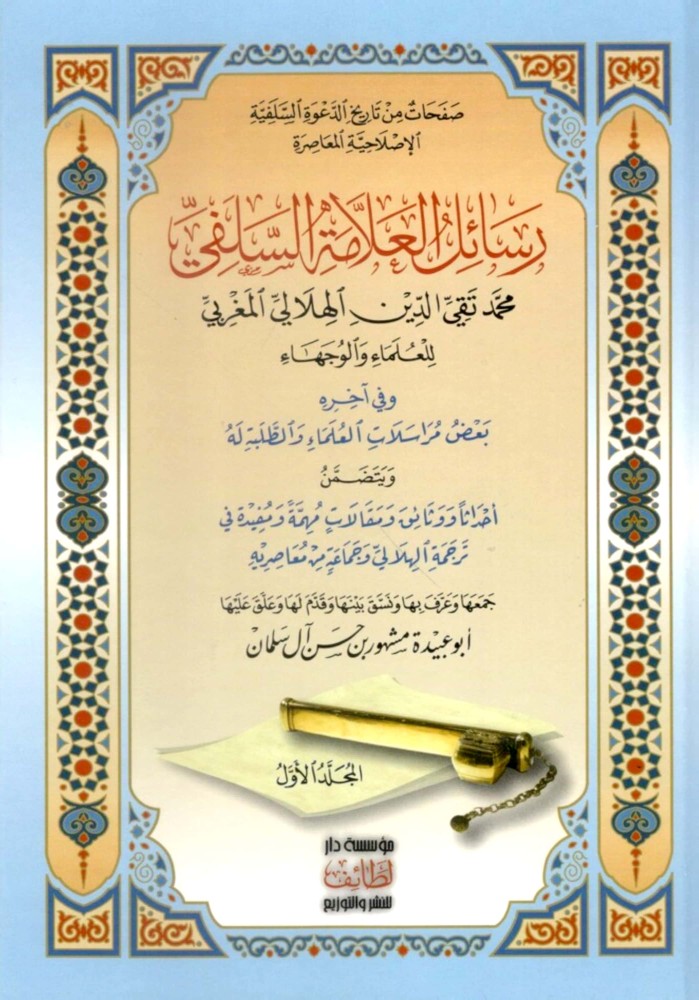 صَفَحَاتٌ مِنْ تَارِيخِ الدَّعْوَةِ السَّلَفِيَّةِ
الإِصْلَاحِيَّةِ المُعَاصِرَةِ
رَسَائِلُ العَلَّامَةِ السَّلَفِيِّ
مُحَمَّد تَقِيِّ الدِّينِ الهِلَالِيِّ المَغْرِبِيِّ
لِلْعُلَمَاءِ وَالوُجَهَاءِ
وَفِي آخِرِهِ
بَعْضُ مُرَاسَلَاتِ العُلَمَاءِ وَالطَّلَبَةِ لَهُ
وَيَتَضَمَّنُ
أَحْدَاثًا وَوَثَائِقَ وَمَقَالَاتٍ مُهِمَّةً وَمُفِيدَةً فِي
تَرْجَمَةِ الهِلَالِيِّ وَجَمَاعَةٍ مِنْ مُعَاصِرِيهِ
جَمَعَهَا وَعَرَّفَ بِهَا وَنَسَّقَ بَيْنَهَا وَقَدَّمَ لَهَا وَعَلَّقَ عَلَيْهَا
أبو عبيدة مشهور بن حسن آل سلمان
المُجَلَّدُ الأَوَّلُ
مؤسسة دار
لطائف
للنشر والتوزيع